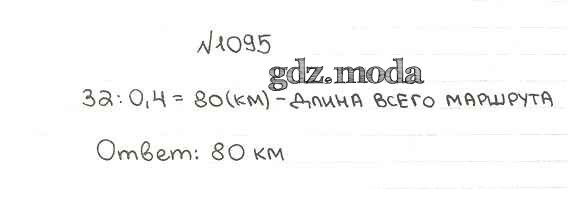 №1095
gdz.moda
32 : 0,4 = 80 (км) - длина всего маршрута
Ответ: 80 км